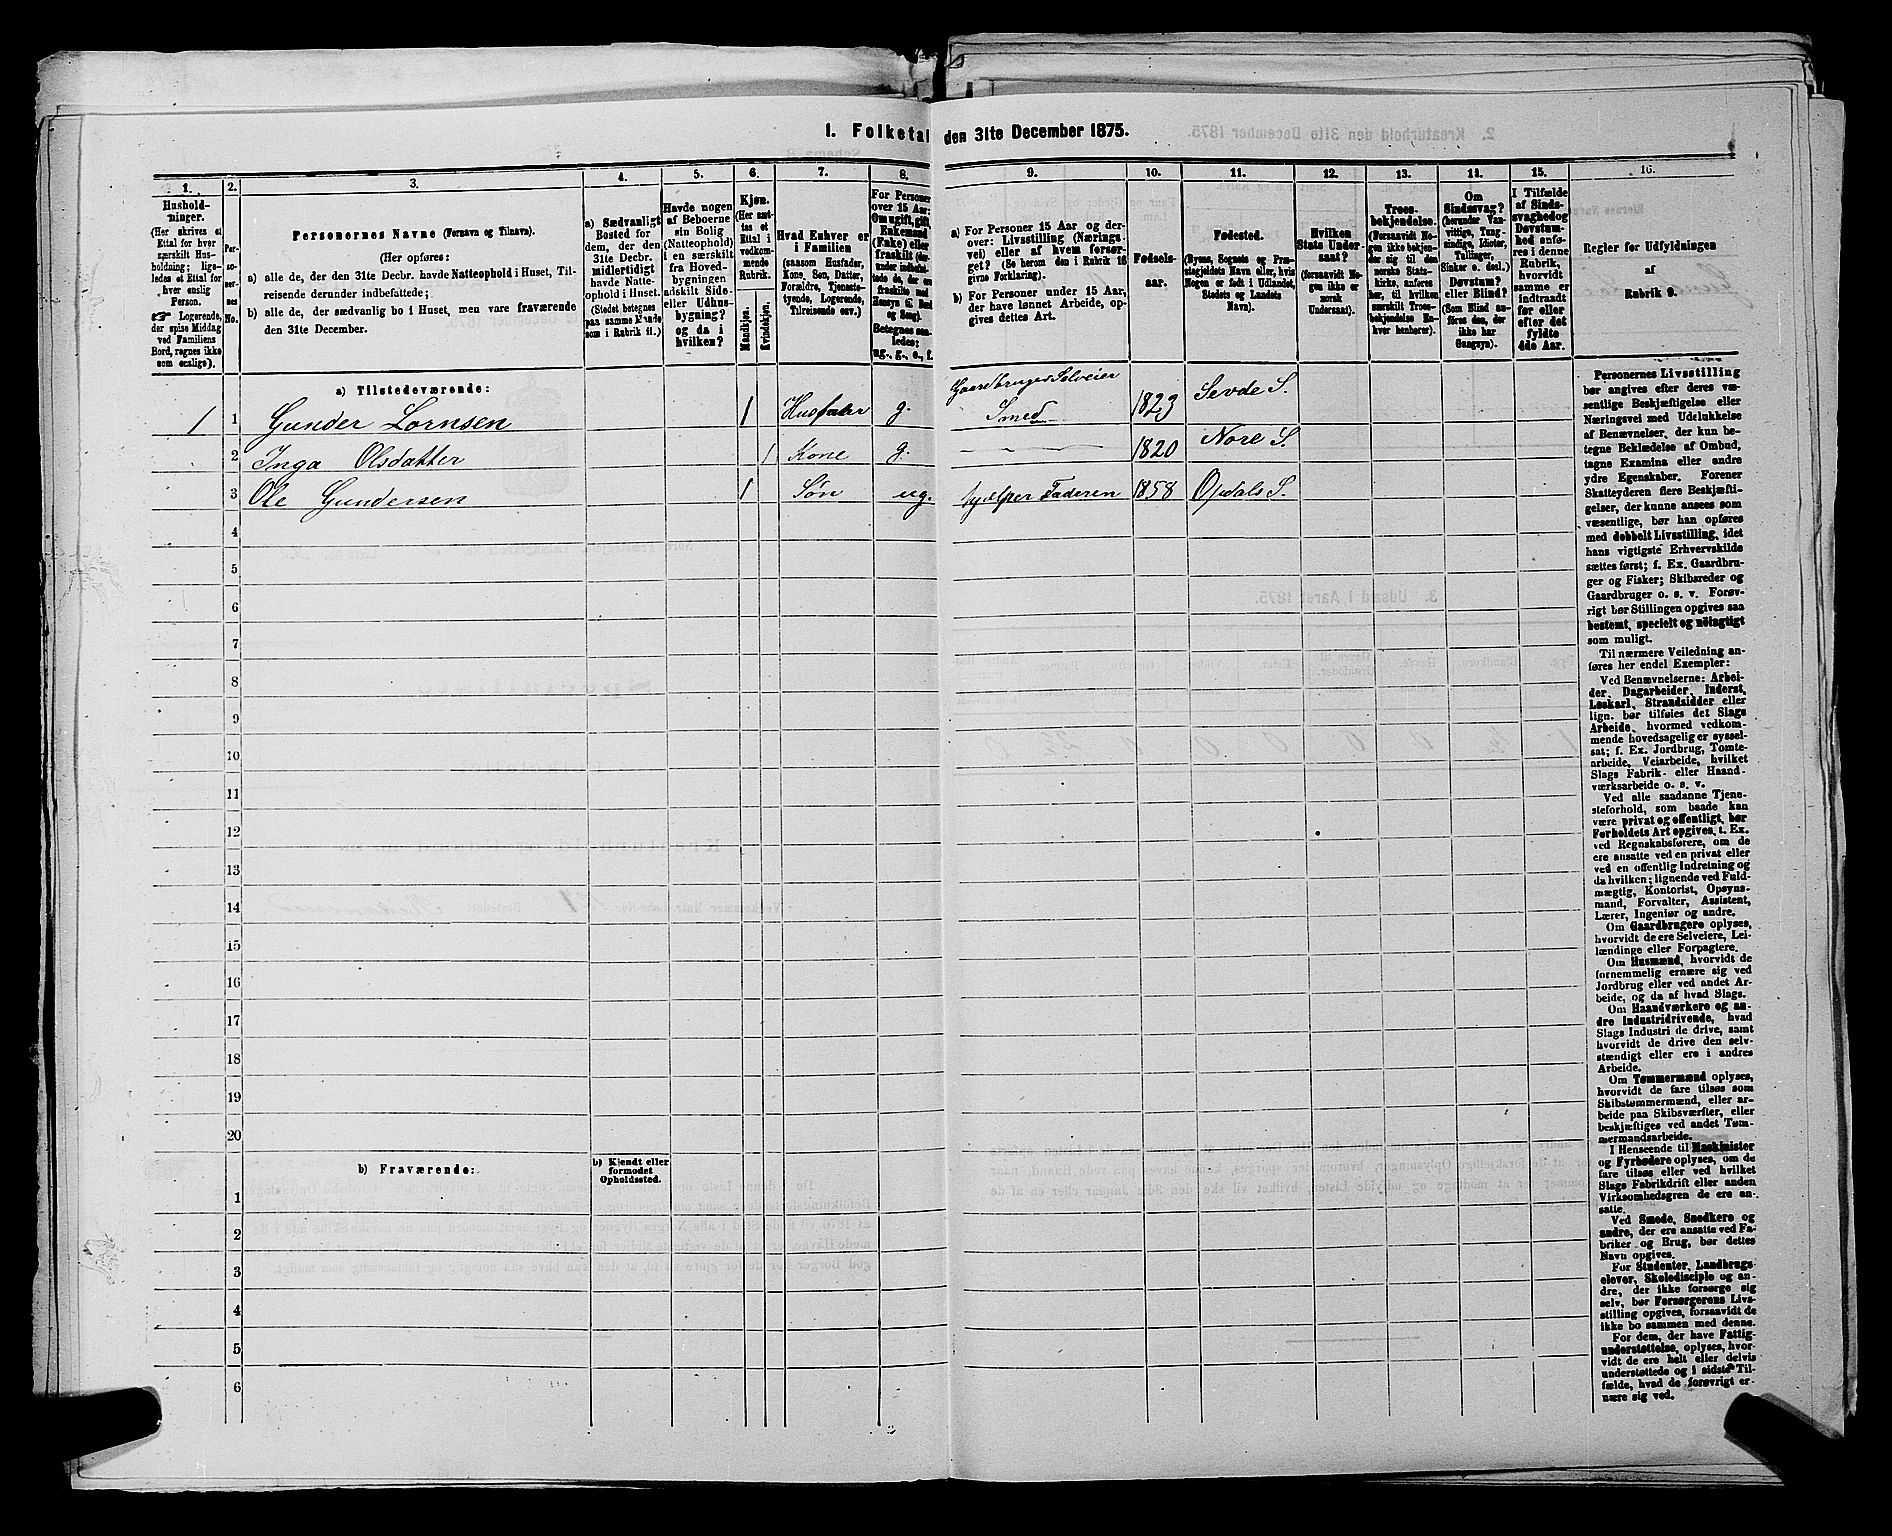 1. Folketal den 31te December 1875.
1. 2. 3. 4. 5. 6. 7. 8. 9. 10. 11. 12. 13. 14. 15. 16.
Hushold-
ninger.
(Her skrives et
Ettal for hver
særskilt Hus-
holdning; lige-
ledes et Ettal for
hver enslig
Person.
☞ Logerende,
der spise Middag
ved Familiens
Bord, regnes ikke
som enslige).
Per-
so-
ner-
nes
No.
Personernes Navne (Fornavn og Tilnavn).
(Her opføres:
a) alle de, der den 31te Decbr. havde Natteophold i Huset, Til-
reisende derunder indbefattede;
b) alle de, der sædvanlig bo i Huset, men vare fraværende
den 31te December.
a) Sædvanligt
Bosted for
dem, der den
31te Decbr.
midlertidigt
havde Natte-
ophold i Huset.
(Stedet betegnes
paa samme Maade
som i Rubrik 11.)
Havde nogen
af Beboerne
sin Bolig
(Natteophold)
i en særskilt
fra Hoved-
bygningen
adskilt Side-
eller Udhus-
bygning?
og da i
hvilken?
Kjøn.
(Her sæt-
tes et
Ettal i
vedkom-
mende
Rubrik.
Mandkjøn.
Kvindekjøn.
Hvad Enhver er
i Familien
(saasom Husfader,
Kone, Søn, Datter,
Forældre, Tjeneste-
tyende, Logerende,
Tilreisende osv.)
For Personer
over 15 Aar:
Om ugift, gift,
Enkemand
(Enke) eller
fraskilt
Betegnes saa-
ledes:
ug., g., e., f.
a) For Personer 15 Aar og der-
over: Livsstilling (Nærings-
vei) eller af hvem forsør-
get? (Se herom den i Rubrik 16
givne Forklaring).
b) For Personer under 15 Aar,
der have lønnet Arbeide, op-
gives dettes Art.
Fødsels-
aar.
Fødested.
(Byens, Sognets og Præ-
stegjeldets Navn eller, hvis
Nogen er født i Udlandet,
Stedets og Landets
Navn).
Hvilken
Stats Under-
saat?
(forsaavidt No-
gen ikke er
norsk
Undersaat).
Troes-
bekjendelse.
(Forsaavidt No-
gen ikke bekjen-
der sig til den
norske Stats-
kirke, anføres
her, til hvilken
særskilt Troes-
bekjendelse En-
hver henhører).
Om
Sindssvag?
(herunder Van-
vittige, Tung-
sindige, Idioter,
Tullinger,
Sinker o. desl.)
Døvstum?
eller Blind?
(Som Blind an-
føres den, der
ikke har
Gangsyn).
I Tilfælde
af Sinds-
svaghed og
Døvstum-
hed anfø-
res i denne
Rubrik,
hvorvidt
samme er
indtraadt
før eller
efter det
fyldte
4de Aar.
Regler for Udfyldningen
af
Rubrik 9.
a) Tilstedeværende:
1 1 Gunder Lornsen 1 Husfader g. Gaardbruger Selveier
Smed 1823 Sevde S.
2 Inga Olsdatter 1 Kone g. 1820 Nore S.
3 Ole Gundersen 1 Søn ug. hjælper Faderen 1858 Opdals S.
4
5
6
7
8
9
10
11
12
13
14
15
16
17
18
19
20
b) Fraværende:
b) Kjendt eller
formodet
Opholdssted.
1
2
3
4
5
6
Personernes Livsstilling
bør angives efter deres væ-
sentlige Beskjæftigelse eller
Næringsvei med Udelukkelse
af Benævnelser, der kun be-
tegne Beklædelse af Ombud,
tagne Examina eller andre
ydre Egenskaber. Forener
Skatteyderen flere Beskjæfti-
gelser, der kunne ansees som
væsentlige, bør han opføres
med dobbelt Livsstilling, idet
hans vigtigste Erhvervskilde
sættes først; f. Ex. Gaardbru-
ger og Fisker; Skibsreder og
Gaardbruger o. s. v. Forøv-
rigt bør Stillingen opgives saa
bestemt, specielt og nøiagtigt
som muligt.
Til nærmere Veiledning an-
føres her endel Exempler:
Ved Benævnelserne: Arbei-
der, Dagarbeider, Inderst,
Løskarl, Strandsidder eller
lign. bør tilføies det Slags
Arbeide, hvormed vedkom-
mende hovedsagelig er syssel-
sat; f. Ex. Jordbrug, Tomte-
arbeide, Veiarbeide, hvilket
Slags Fabrik- eller Haand-
værksarbeide o. s. v.
Ved alle saadanne Tjene-
steforhold, som baade kan
være privat og offentligt, bør
Forholdets Art opgives, t. Ex.
ved Regnskabsførere, om de
ere ansatte ved en privat eller
ved en offentlig Indretning og
da hvilken; lignende ved Fuld-
mægtig, Kontorist, Opsyns-
mand, Forvalter, Assistent,
Lærer, Ingeniør og andre.
Om Gaardbrugere oplyses,
hvorvidt de ere Selveiere, Lei-
lændinge eller Forpagtere.
Om Husmænd, hvorvidt de
fornemmelig ernære sig ved
Jordbrug eller ved andet Ar-
beide, og da af hvad Slags.
Om Haandværkere og an-
dre Industridrivende, hvad
Slags Industri de drive, samt
hvorvidt de drive den selv-
stændigt eller ere i andres
Arbeide.
Om Tømmermænd oplyses,
hvorvidt de fare tilsøs som
Skibstømmermænd, eller ar-
beide paa Skibsværfter, eller
beskjæftiges ved andet Tøm-
mermandsarbeide.
I Henseende til Maskinister
og Fyrbødere oplyses, om de
fare tilsøs eller ved hvilket
Slags Fabrikdrift eller anden
Virksomhedsgren de ere an-
satte.
Ved Smede, Snedkere og
andre, der ere ansatte ved Fa-
briker og Brug, bør dettes
Navn opgives.
For Studenter, Landbrugs-
elever, Skoledisciple og an-
dre, der ikke forsørge sig
selv, bør Forsørgerens Livs-
stilling opgives, forsaavidt de
ikke bo sammen med denne.
For dem, der have Fattig-
understøttelse, oplyses, hvor-
vidt de ere helt eller delvis
understøttede og i sidste Til-
fælde, hvad de forøvrigt er-
nære sig ved.